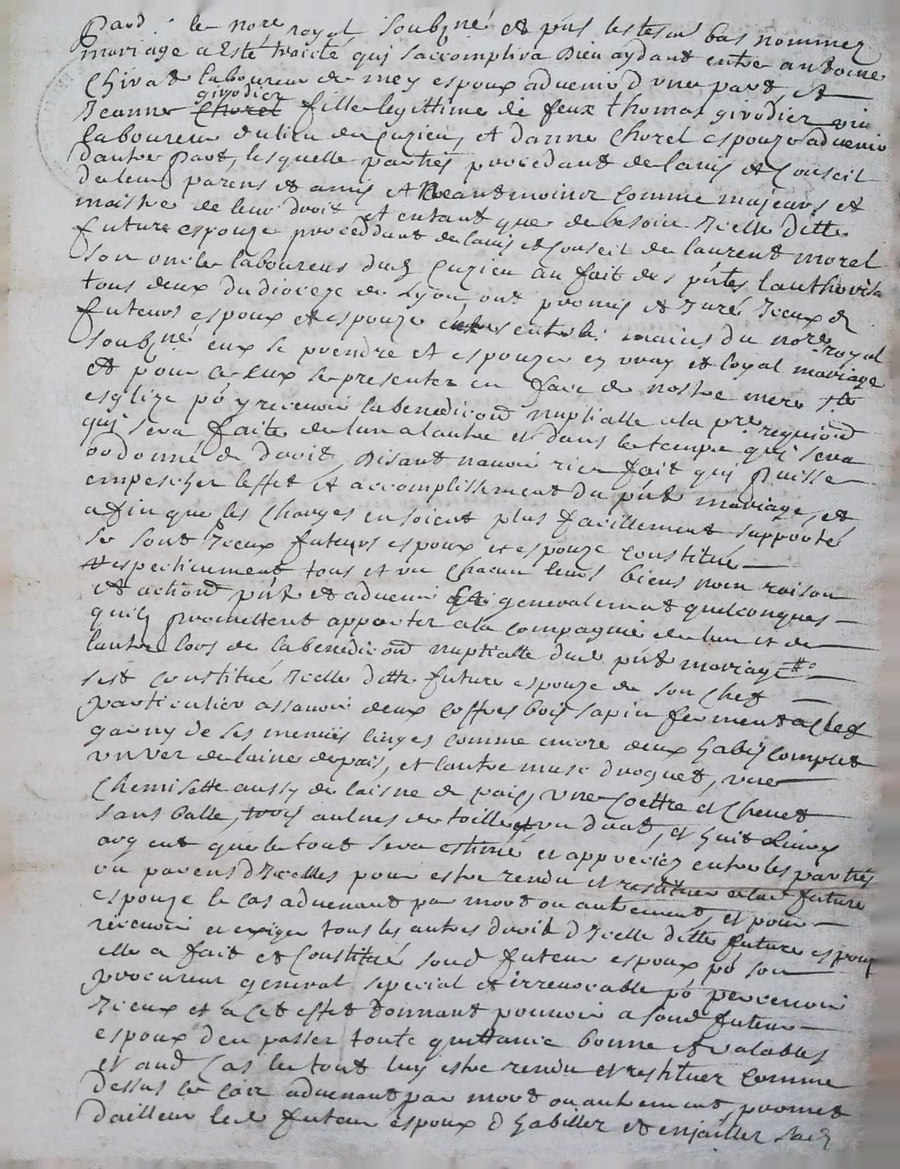 Pard. le nore royal soubzné et pnt les tesm bas nommez
mariage a Esté traicté qui saccomplira Dieu aydant entre antoine
Chirat laboureur de mey espoux advenir d'une part Et
Jeanne Chorel girodier fille legittime de feux thomas girodier viv
laboureur du lieu de Cuzieu, et danne Chorel espouze advenir
dautre Part, lesquelle parties procedant de lavis et Conseil
de leur parens et amis et Neantmoins comme majeurs et
maistre de leur droit et entant que de besoin Icelle ditte
future espouze procedant de lavis et Conseil de laurent morel
son oncle laboureur dud Cuzieu au fait des pntes lauthoris
tous deux du dioceze de Lyon ont promis et Juré Iceux d
futeurs espoux et espouze entre les mains du nore royal
soubzné eux se prendre et espouzer en vray et loyal mariage
et pour ce eux se presenter en face de nostre mere ste
esglize po y recevoir la benediction nuptialle a la pre requion
qui sera faite de lun a lautre et dans le temps qui sera
ordonné de droit, Disant navoir rien fait qui Puisse
empescher leffet et accomplissement du pnt mariage, et
afin que les Charges en soient plus facillement supporté
se sont Iceux futeurs espoux et espouze constitué
respectivement tous et un Chacun leurs biens nom raison
et action pnt et advenir et generalement quelconques
quilz promettent apporter a la compagnie de lun et de
lautre lors de la benediction nuptialle dud pnt mariage
sest constitué Icelle ditte future espouze de son Chef
particulier assavoir deux coffres bois sapin fermant a Clef
garny de ses menues linges comme encore deux habis complet
un ver de laine de pais, et lautre muse droguet, une
Chemisette aussy de laisne de pais, une Coettre et Chevet
sans balle, trois aulnes de toille un drat, et huit livres
argent que le tout sera estimé et appreciez entre les parties
ou parens d'Icelles pour estre rendu et restituer a lad future
espouze le cas advenant par mort ou autrement, et pour
recevoir et exiger tous les autres droit d Icelle ditte future espouze
elle a fait et Constitué soud futeur espoux po son
procureur general special et irrevocable po percevoir
Iceux et a cet effet donnant pouvoir a soud futeur
espoux d'en passer toute quittance bonne et valables
et aud Cas le tout luy estre rendu et restituer comme
dessus le cas advenant par mort ou autrement, promet
dailleur led futeur espoux d habiller et enjailler sad